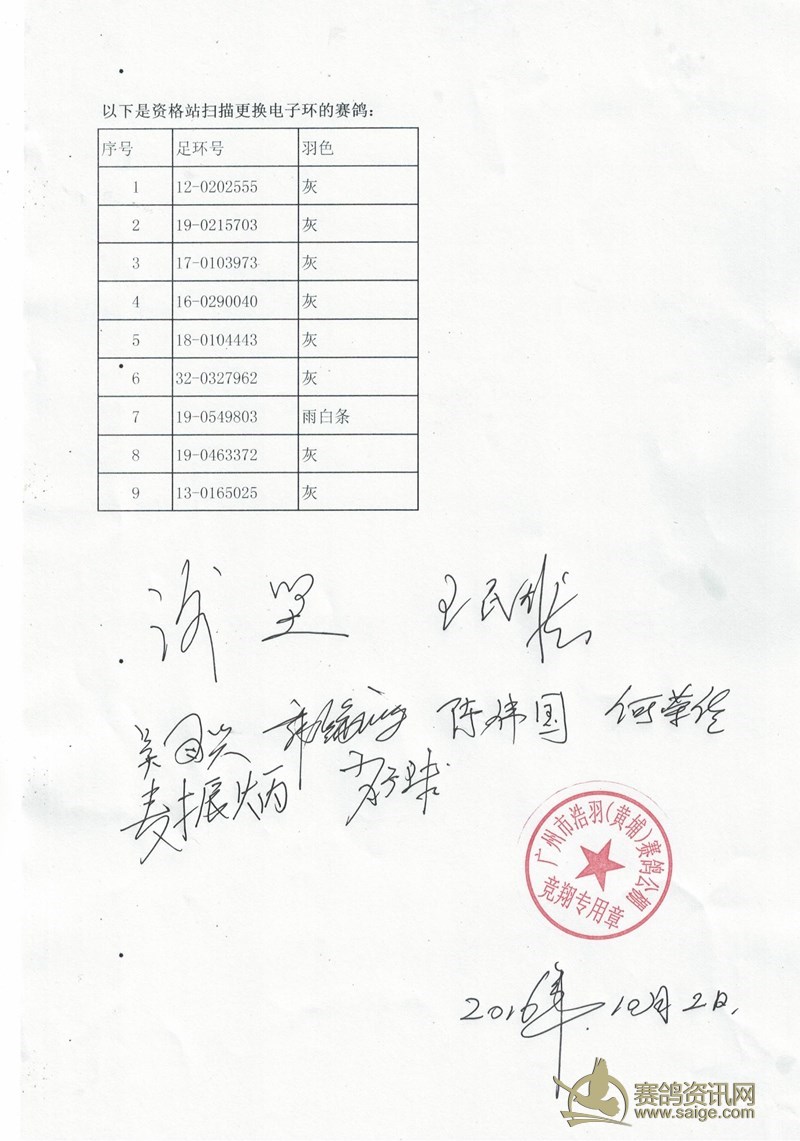 以下是资格站扫描更换电子环的赛鸽：
序号 足环号 羽色
1 12-0202555 灰
2 19-0215703 灰
3 17-0103973 灰
4 16-0290040 灰
5 18-0104443 灰
6 32-0327962 灰
7 19-0549803 雨白条
8 19-0463372 灰
9 13-0165025 灰
王民
陈伟国 何荣佳
麦振炳
广州市浩羽(黄埔)赛鸽公棚
竞翔专用章
2016年10月2日.
赛鸽资讯网
www.saige.com